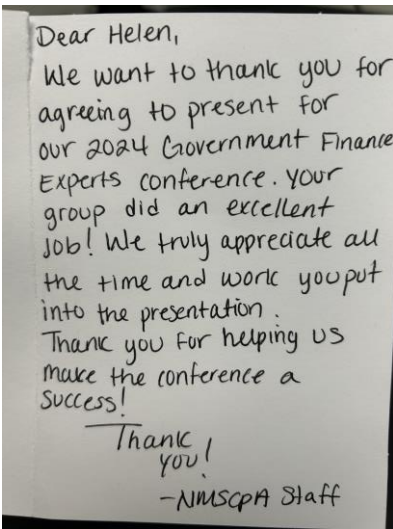 Dear Helen,
We want to thank you for
agreeing to present for
our 2024 Government Finance
Experts conference. Your
group did an excellent
job! We truly appreciate all
the time and work you put
into the presentation.
Thank you for helping us
make the conference a
success!
Thank
you!
-NMSCPA Staff